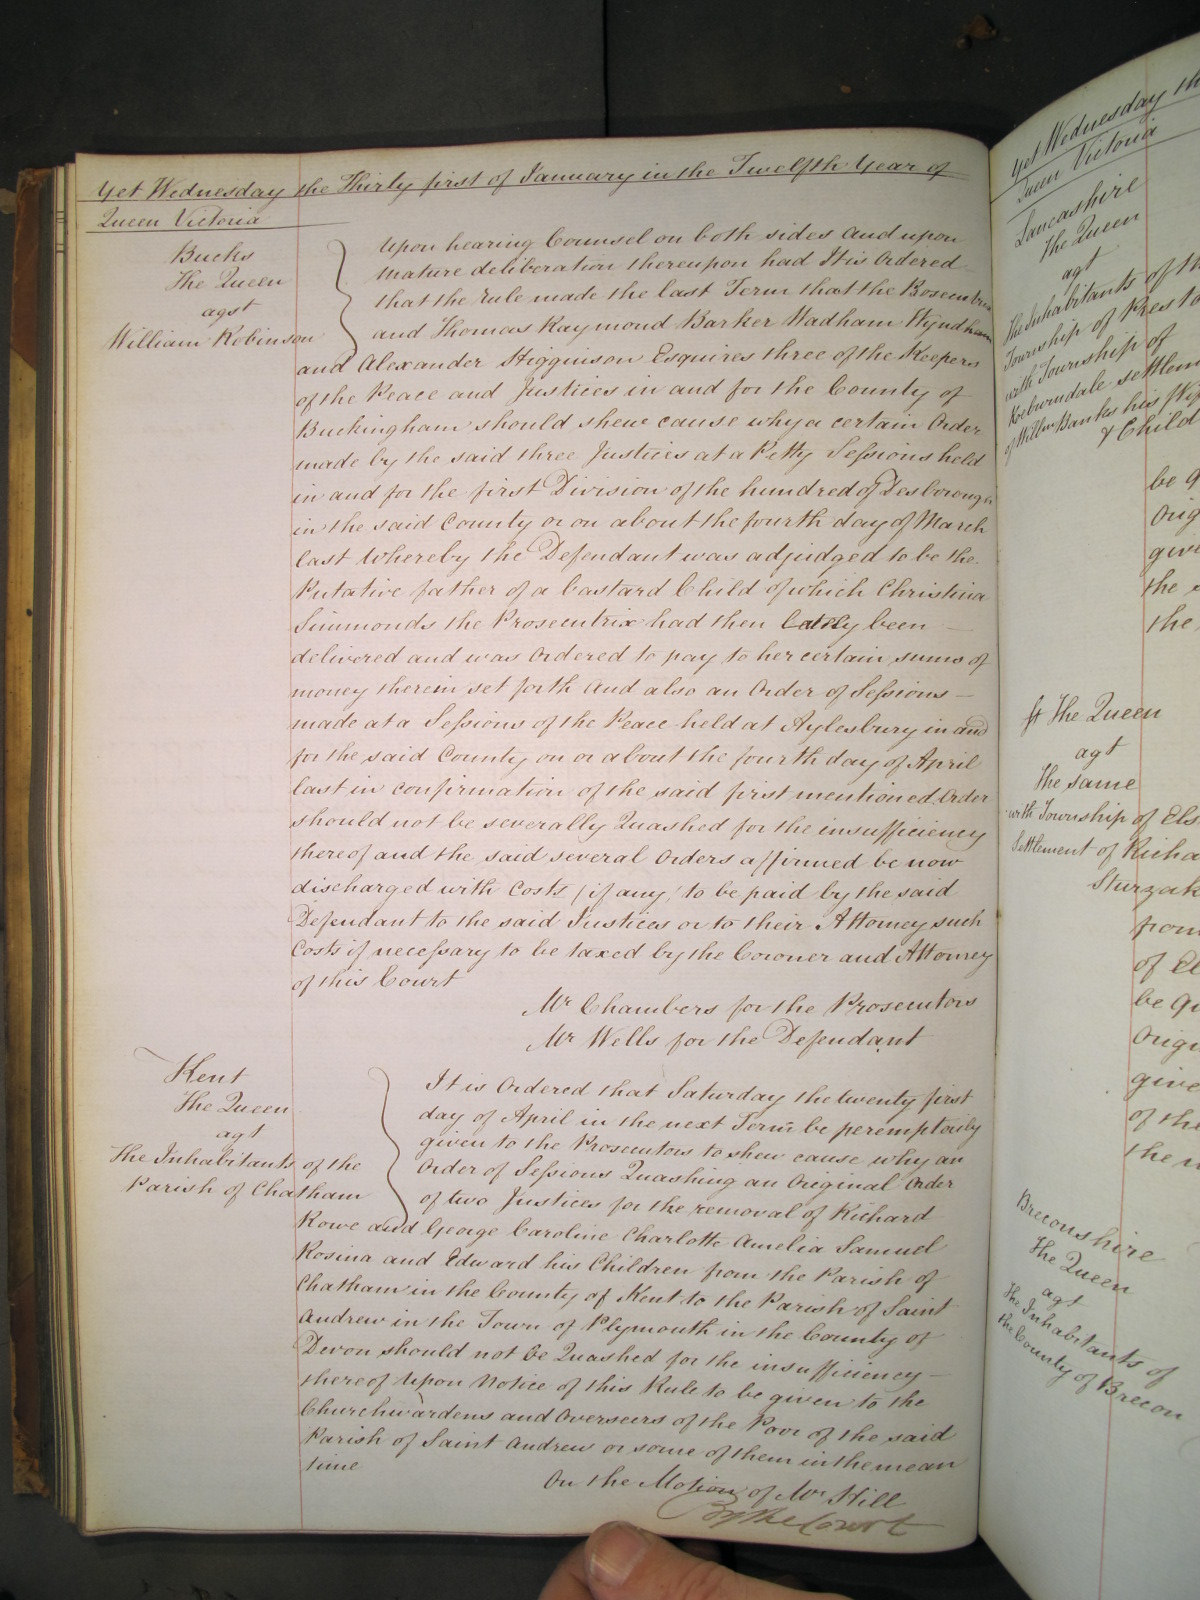 Yet Wednesday the Thirty first of January in the Twelfth Year of
Queen Victoria
Bucks
The Queen
agst
William Robinson
Upon hearing Counsel on both sides and upon
mature deliberation thereupon had It is Ordered
that the rule made the last Term that the Prosecutrix
and Thomas Raymond Barker Wadham Wyndham
and Alexander Higginson Esquires three of the Keepers
of the Peace and Justices in and for the County of
Buckingham should shew cause why a certain Order
made by the said three Justices at a Petty Sessions held
in and for the first Division of the hundred of Desborough
in the said County or on about the fourth day of March
last whereby the Defendant was adjudged to be the
Putative father of a bastard Child of which Christina
Simmonds the Prosecutrix had then lately been
delivered and was Ordered to pay to her certain sums of
money therein set forth and also an Order of Sessions
made at a Sessions of the Peace held at Aylesbury in and
for the said County on or about the fourth day of April
last in confirmation of the said first mentioned Order
should not be severally Quashed for the insufficiency
thereof and the said several Orders affirmed be now
discharged with Costs (if any) to be paid by the said
Defendant to the said Justices or to their Attorney such
Costs if necessary to be taxed by the Coroner and Attorney
of this Court
Mr Chambers for the Prosecutors
Mr Wells for the Defendant
Kent
The Queen
agt
The Inhabitants of the
Parish of Chatham
It is Ordered that Saturday the twenty first
day of April in the next Term be peremptorily
given to the Prosecutors to shew cause why an
Order of Sessions Quashing an Original Order
of two Justices for the removal of Richard
Rowe and George Caroline Charlotte Amelia Samuel
Rosina and Edward his Children from the Parish of
Chatham in the County of Kent to the Parish of Saint
Andrew in the Town of Plymouth in the County of
Devon should not be Quashed for the insufficiency
thereof Upon Notice of this Rule to be given to the
Churchwardens and Overseers of the Poor of the said
Parish of Saint Andrew or some of them in the mean
time
On the Motion of Mr Hill
By the Court
Yet Wednesday th
Queen Victoria
Lancashire
The Queen
agt
The Inhabitants of th
Township of Prest
with Township of
Roeburndale settlem
of Willm Banks his Wif
& Child
be Q
Orig
give
the
the
The Queen
agt
The same
with Township of Els
Settlement of Richa
Sturzak
from
of El
be Qu
Origi
give
of the
the
Breconshire
The Queen
agt
The Inhabitants of
the County of Brecon